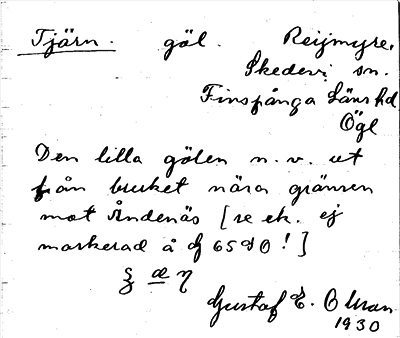 Tjärn. göl. Reijmyre.
Skedevi sn.
Finspånga Läns hd
Ögl
Den lilla gölen n. v. ut
från bruket nära gränsen
mot Ändenäs [se ek. ej
markerad å 65 !]
Gustaf E. Olsson
1930